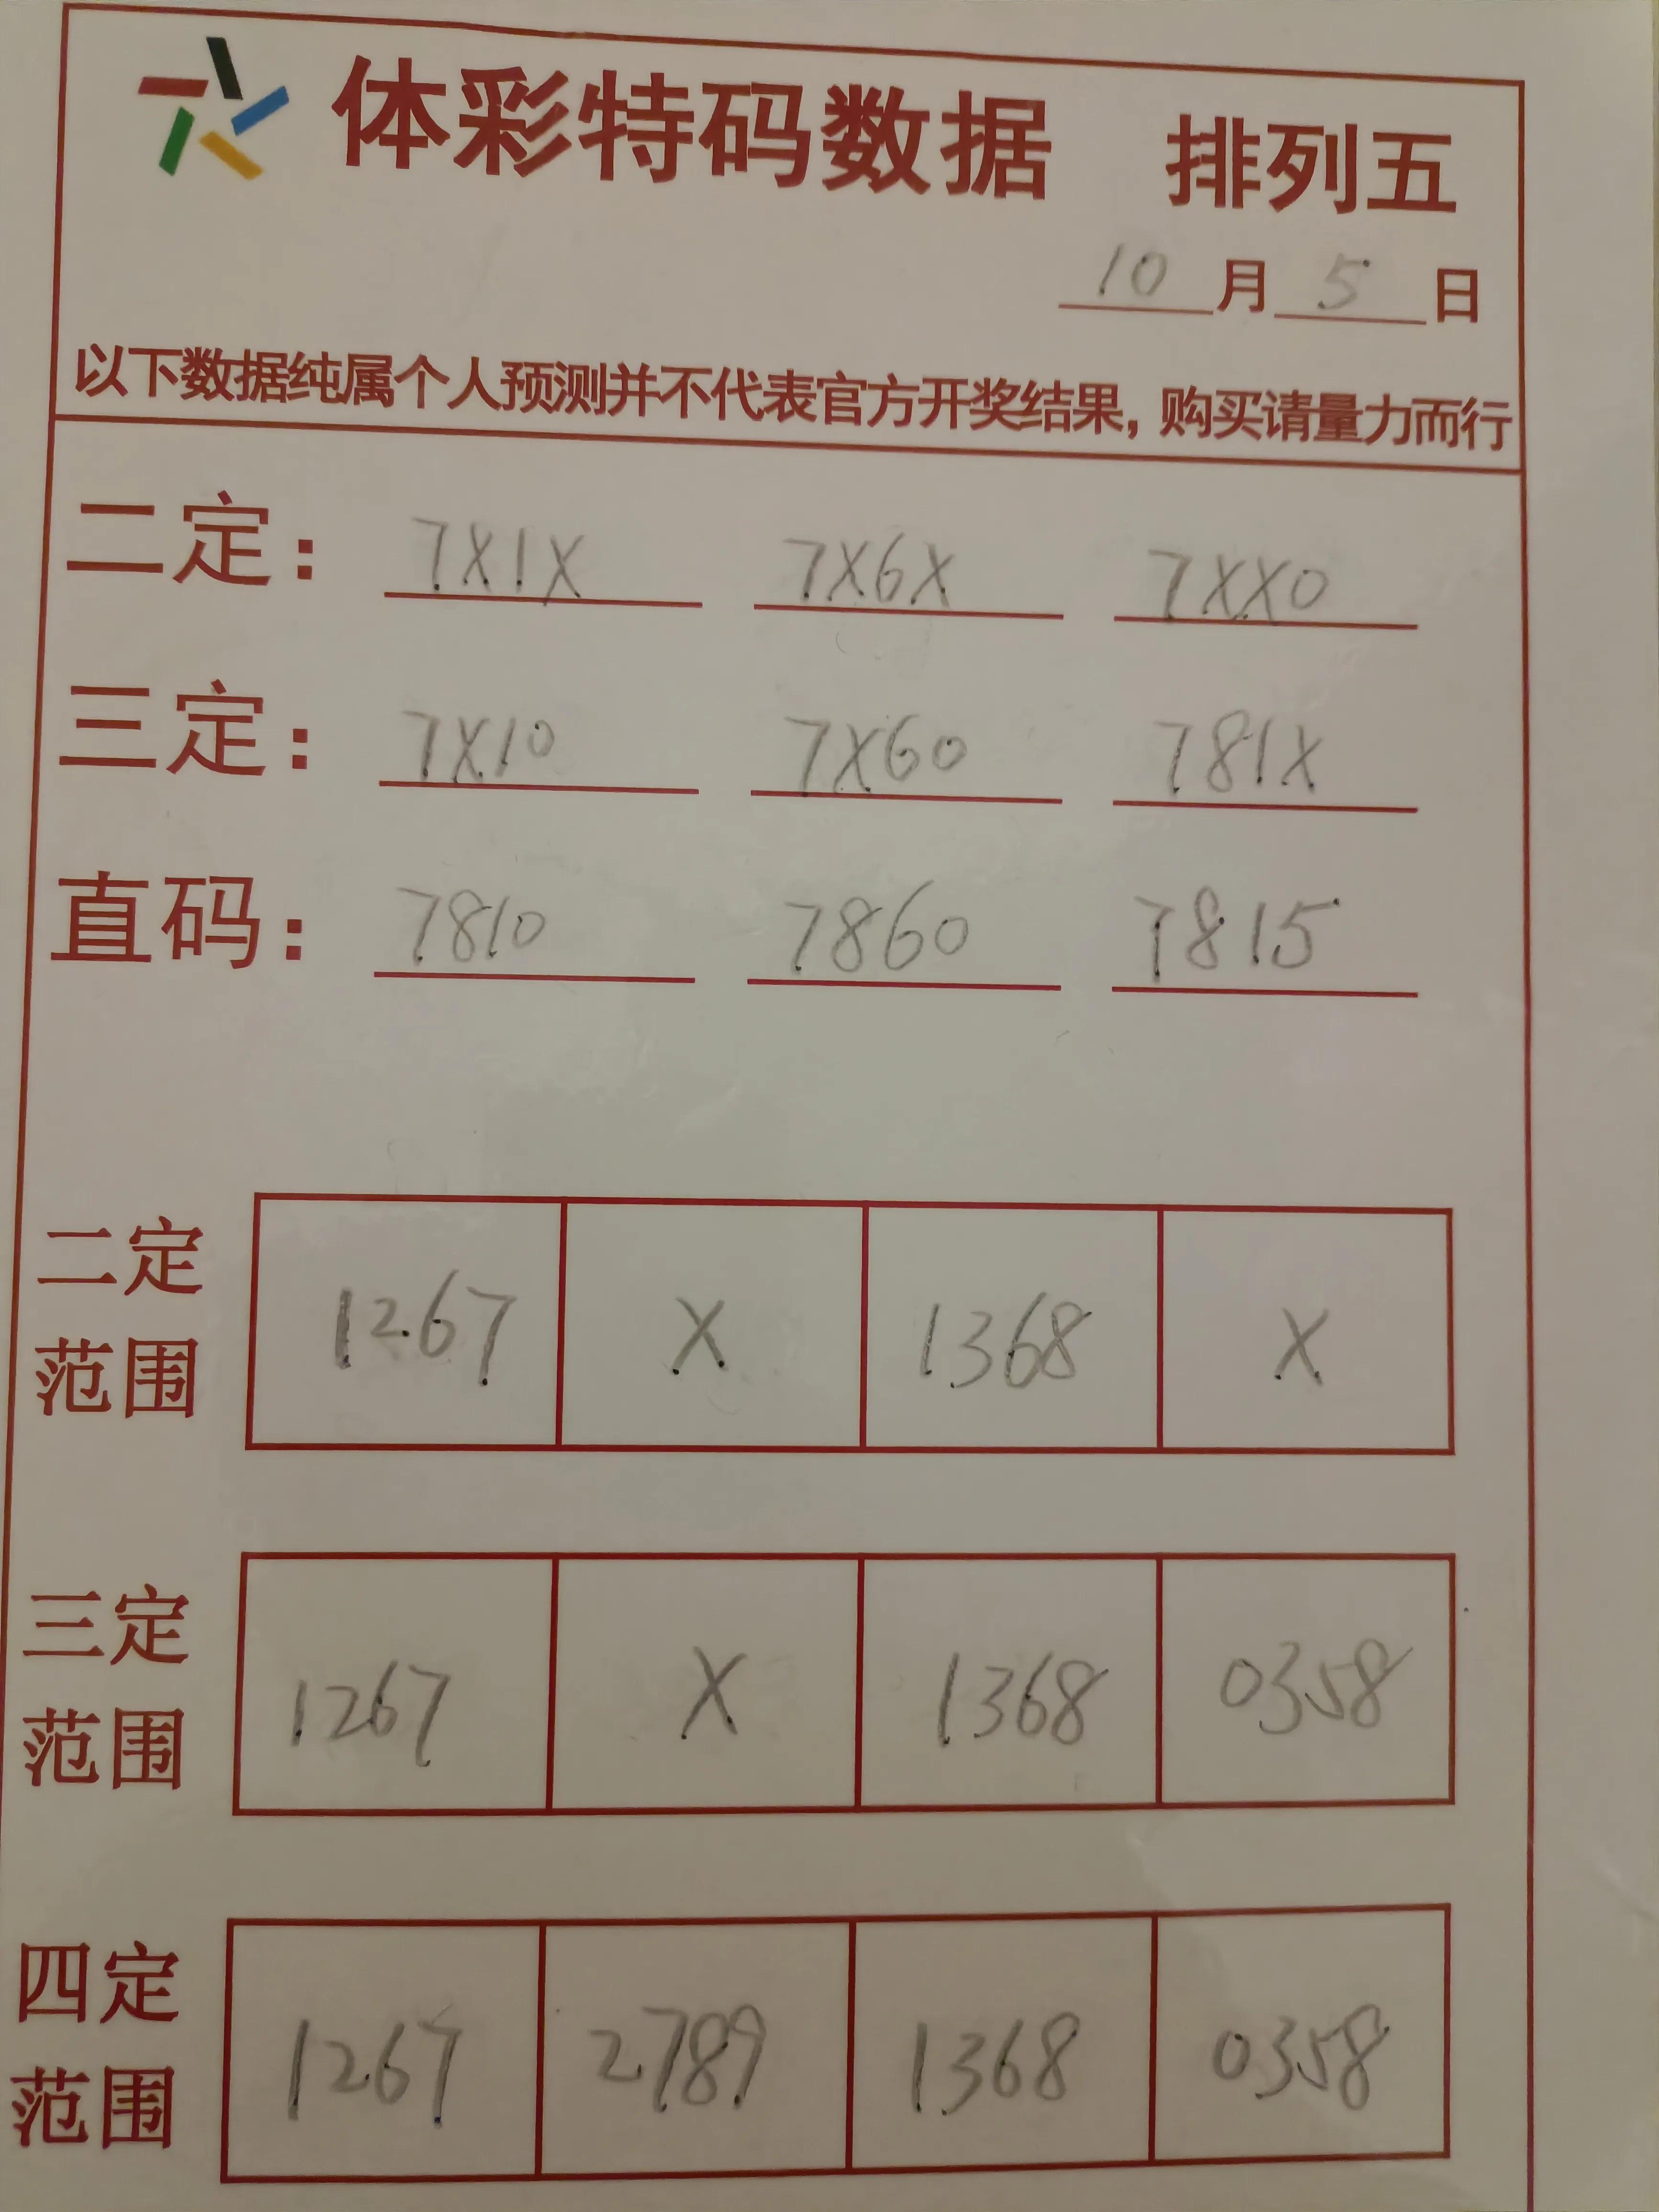 体彩特码数据 排列五
10月5日
以下数据纯属个人预测并不代表官方开奖结果，购买请量力而行
二定： 7X1X 7X6X 7XX0
三定： 7X10 7X60 781X
直码： 7810 7860 7815
二定范围 1267 X 1368 X
三定范围 1267 X 1368 0358
四定范围 1267 2789 1368 0358